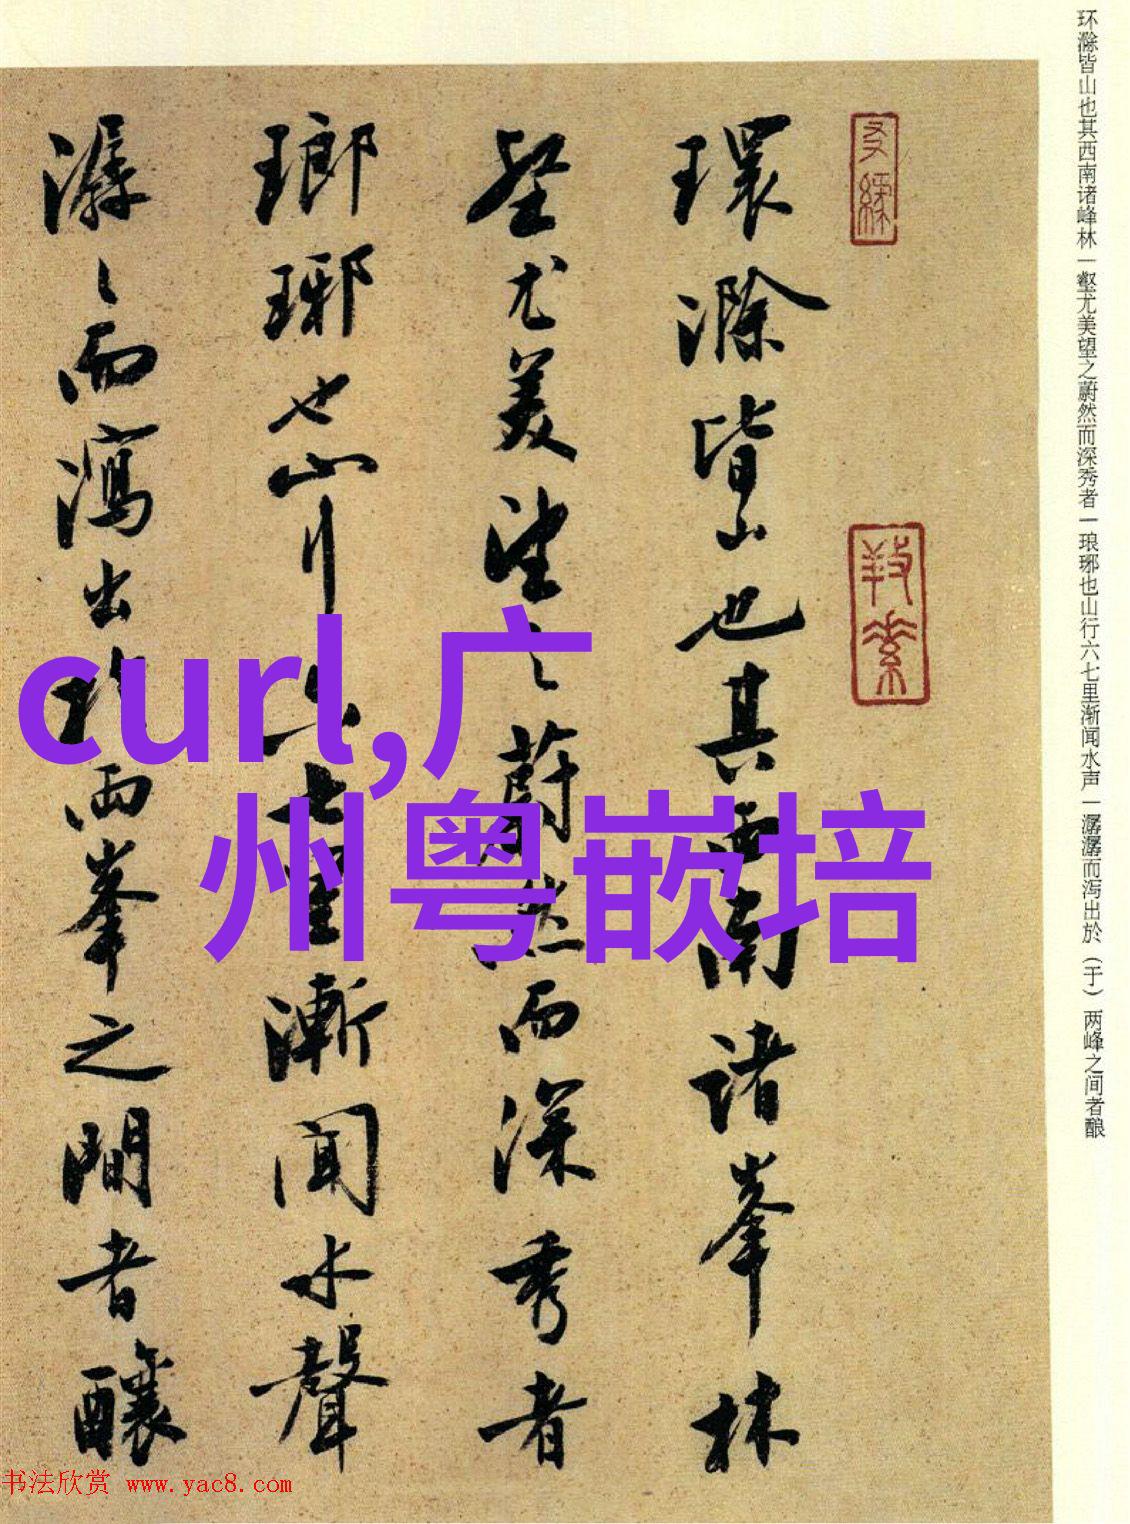 环滁皆山也其西南诸峰林一壑尤美望之蔚然而深秀者一琅琊也山行六七里渐闻水声一潺潺而泻出於（于）两峰之间者酿
環滁皆山也其西南诸峯林
壑尤美望之蔚然而深秀者
瑯琊也山行六七里漸闻水聲
潺々而瀉出於两峯之間者釀
curl,广
州粤嵌培
书法欣赏 www.yac8.com